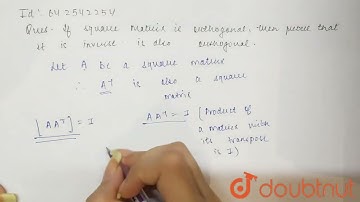 Id : 642542254
Ques - If square matrix is orthogonal, then prove that
it is inverse is also orthogonal.
Let A be a square matrix
∴ Aᵀ is also a square
matrix
[AAᵀ] = I
AAᵀ = I (Product of
a matrix with
its transpose
is I)
doubtnut